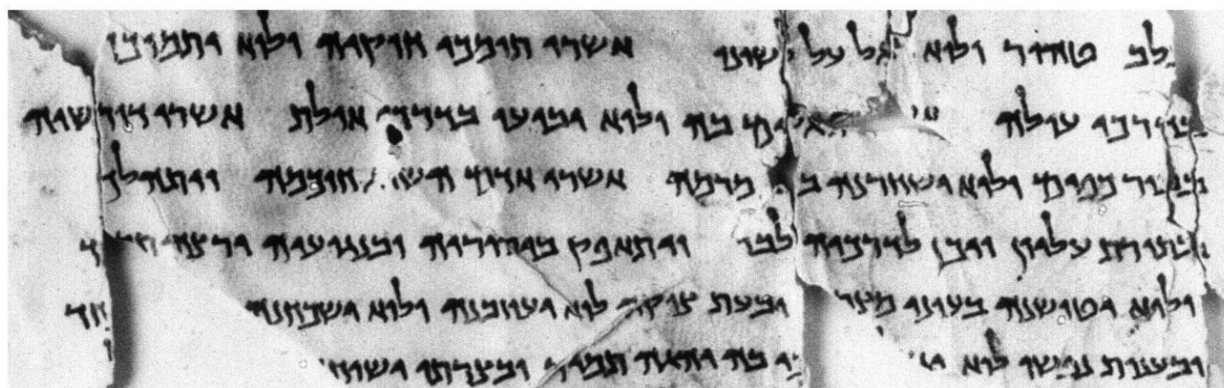 טהור ולוא על לשונו אשרי תומכי חוקיה ולוא יתמוכו
בדרכי עולה בה ולוא יביעו בדרכי אולת אשרי דורשיה
בבור כפים ולוא ישחרנה מרמה אשרי אדם השיג חוכמה ויתהלך
בתורת עליון ויכן לדרכיה לבו ויתאפק ביסוריה ובנגועיה ירצה
ולוא יטושנה בעוני ובעת צוקה לוא יעוזבנה ולוא ישכחנה
ובענות נפשו לוא בה יהגה תמיד ובצרתו